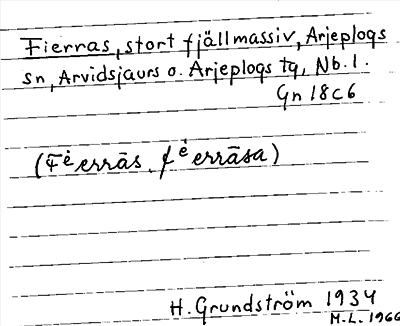 Fierras, stort fjällmassiv, Arjeplogs
sn, Arvidsjaurs o. Arjeplogs tg, Nb. l.
Gn 18c6
(Fė errās, fė errāsa)
H. Grundström 1934
M-L. 1966